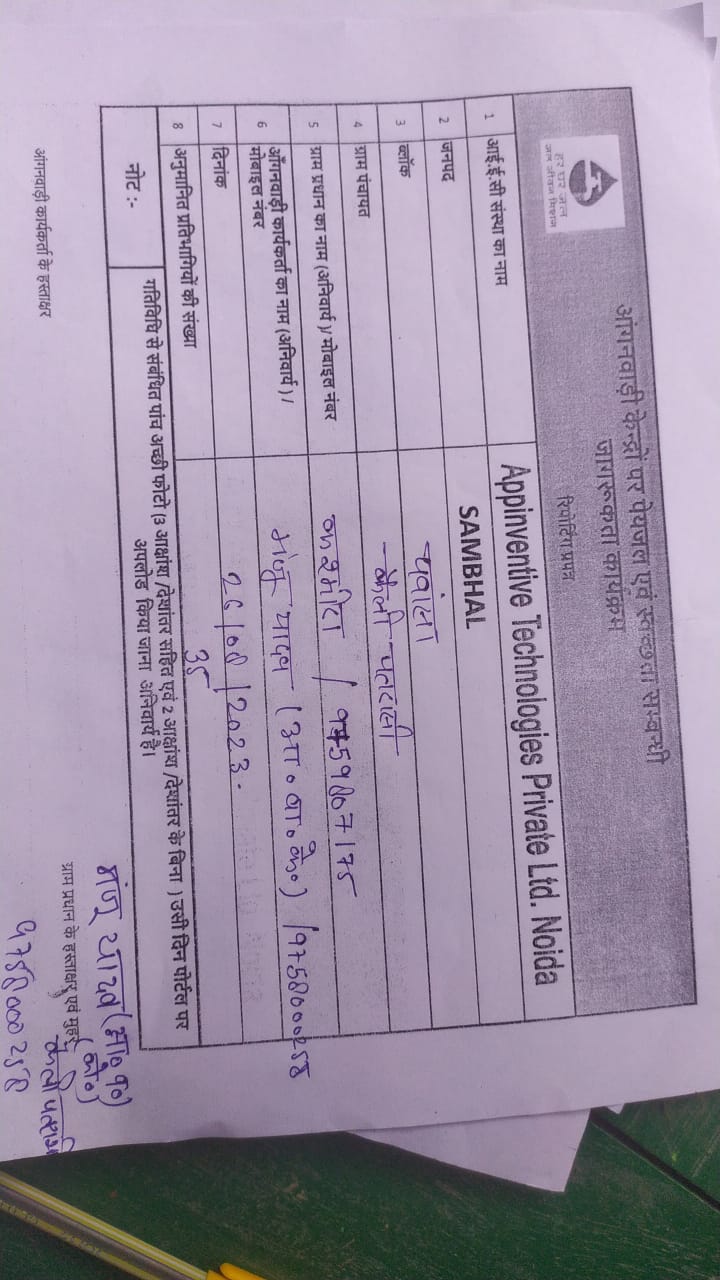 आंगनवाड़ी केन्द्रों पर पेयजल एवं स्वच्छता सम्बन्धी
जागरूकता कार्यक्रम
रिपोर्टिंग प्रपत्र
हर घर जल
जल जीवन मिशन
1 आई.ई.सी संस्था का नाम Appinventive Technologies Private Ltd. Noida
2 जनपद SAMBHAL
3 ब्लॉक पवांसा
4 ग्राम पंचायत
5 ग्राम प्रधान का नाम (अनिवार्य)/ मोबाइल नंबर कश्मीरा /
6 आँगनवाड़ी कार्यकर्ता का नाम (अनिवार्य) / मंजू यादव (आ०बा०के०) /9758000258
मोबाइल नंबर
7 दिनांक 26/08/2023.
8 अनुमानित प्रतिभागियों की संख्या 35
नोट :- गतिविधि से संबंधित पांच अच्छी फोटो (3 आक्षांश /देशांतर सहित एवं 2 आक्षांश /देशांतर के बिना ) उसी दिन पोर्टल पर
अपलोड किया जाना अनिवार्य है।
मंजू यादव
आंगनवाड़ी कार्यकर्ता के हस्ताक्षर ग्राम प्रधान के हस्ताक्षर एवं मुहर
9758000258